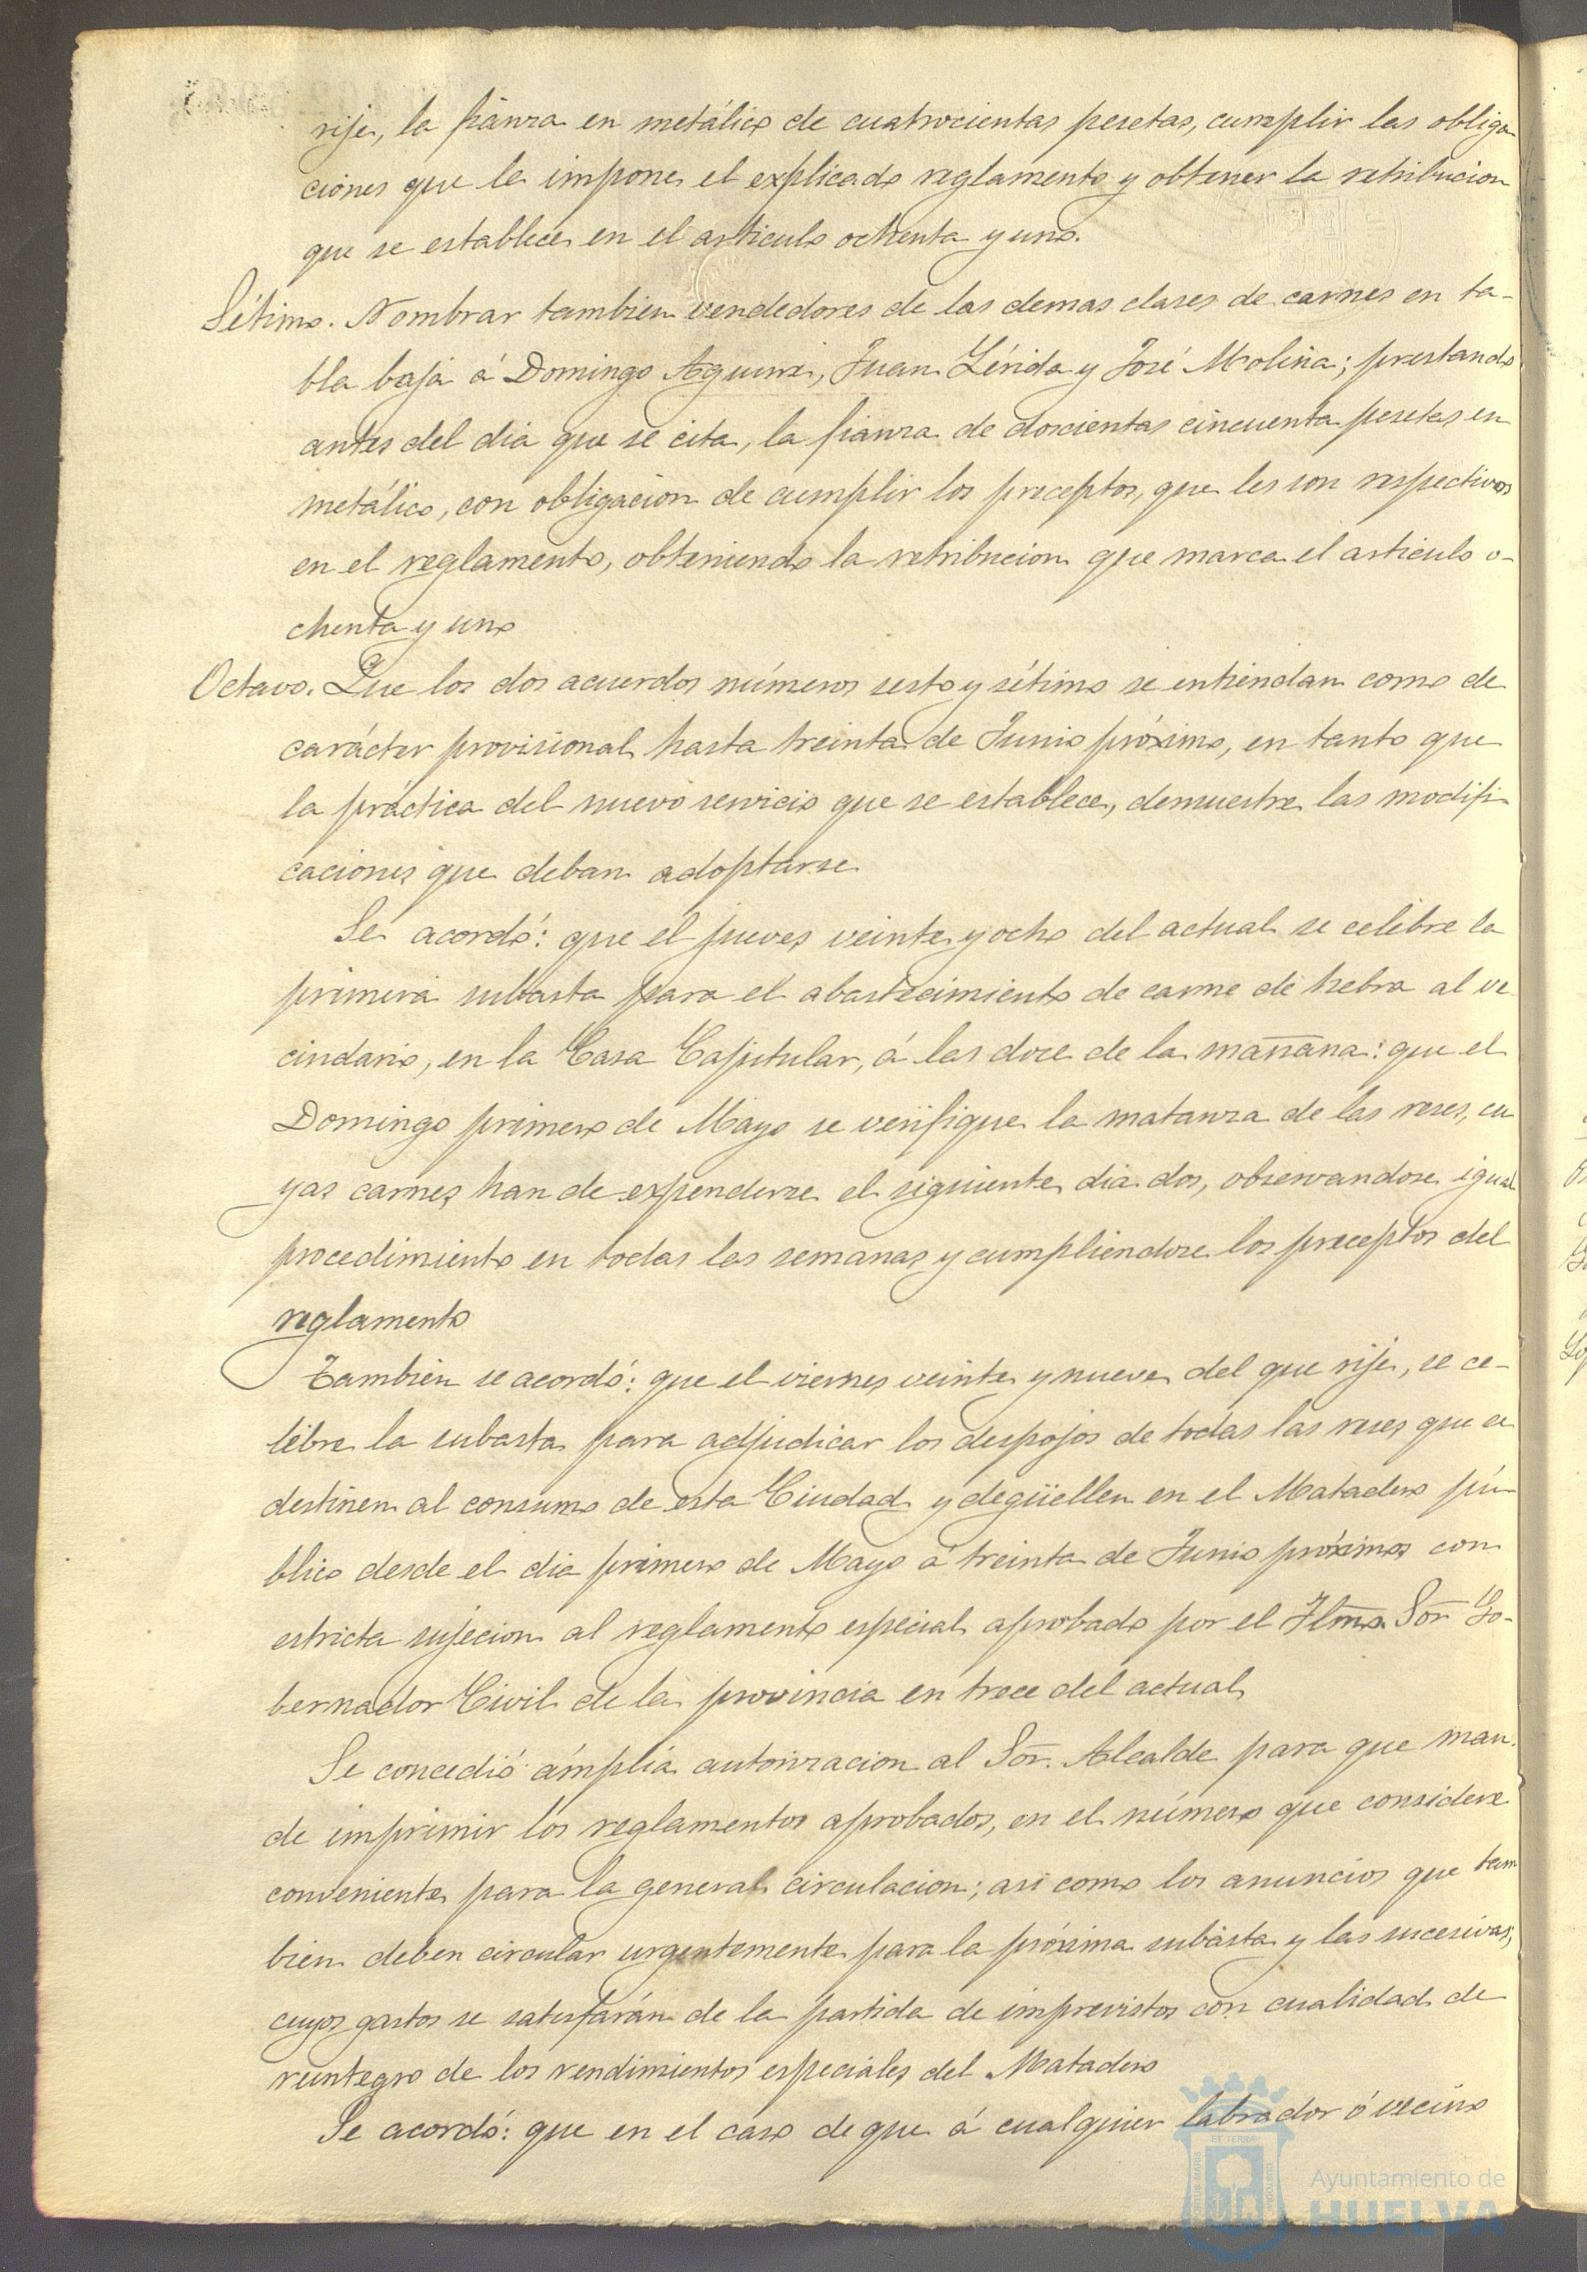 rije, la fianza en metálico de cuatrocientas pesetas, cumplir las obliga
ciones que le impone el explicado reglamento y obtener la retribucion
que se establece en el articulo ochenta y uno.
Sétimo. Nombrar tambien vendedores de las demas clases de carnes en ta-
bla baja á Domingo Aguirre, Juan Lérida y José Molina; prestando
antes del dia que se cita, la fianza de doscientas cincuenta pesetas en
metálico, con obligacion de cumplir los preceptos, que les son respectivos
en el reglamento, obteniendo la retribucion que marca el articulo o-
chenta y uno
Octavo. Que los dos acuerdos números sesto y sétimo se entiendan como de
carácter provisional hasta treinta de Junio próximo, en tanto que
la práctica del nuevo servicio que se establece, demuestre las modifi
caciones que deban adoptarse
Se acordó: que el jueves veinte y ocho del actual se celebre la
primera subasta para el abastecimiento de carne de hebra al ve
cindario, en la Casa Capitular, á las doce de la mañana: que el
Domingo primero de Mayo se verifique la matanza de las reses, cu
yas carnes han de expenderse el siguiente dia dos, observandose igual
procedimiento en todas las semanas y cumpliendose los preceptos del
reglamento
Tambien se acordó: que el viernes veinte y nueve del que rije, se ce-
lebre la subasta para adjudicar los despojos de todas las reses que se
destinen al consumo de esta Ciudad y degüellen en el Matadero pú-
blico desde el dia primero de Mayo á treinta de Junio próximos con
estricta sujecion al reglamento especial aprobado por el Iltmo. Sor Go-
bernador Civil de la provincia en trece del actual
Se concedió ámplia autorizacion al Sor. Alcalde para que man-
de imprimir los reglamentos aprobados, en el número que considere
conveniente para la general circulacion; asi como los anuncios que tam
bien deben circular urgentemente para la próxima subasta y las sucesivas;
cuyos gastos se satisfarán de la partida de imprevistos con cualidad de
reintegro de los rendimientos especiales del Matadero
Se acordó: que en el caso de que á cualquier labrador ó vecino
Ayuntamiento de
HUELVA